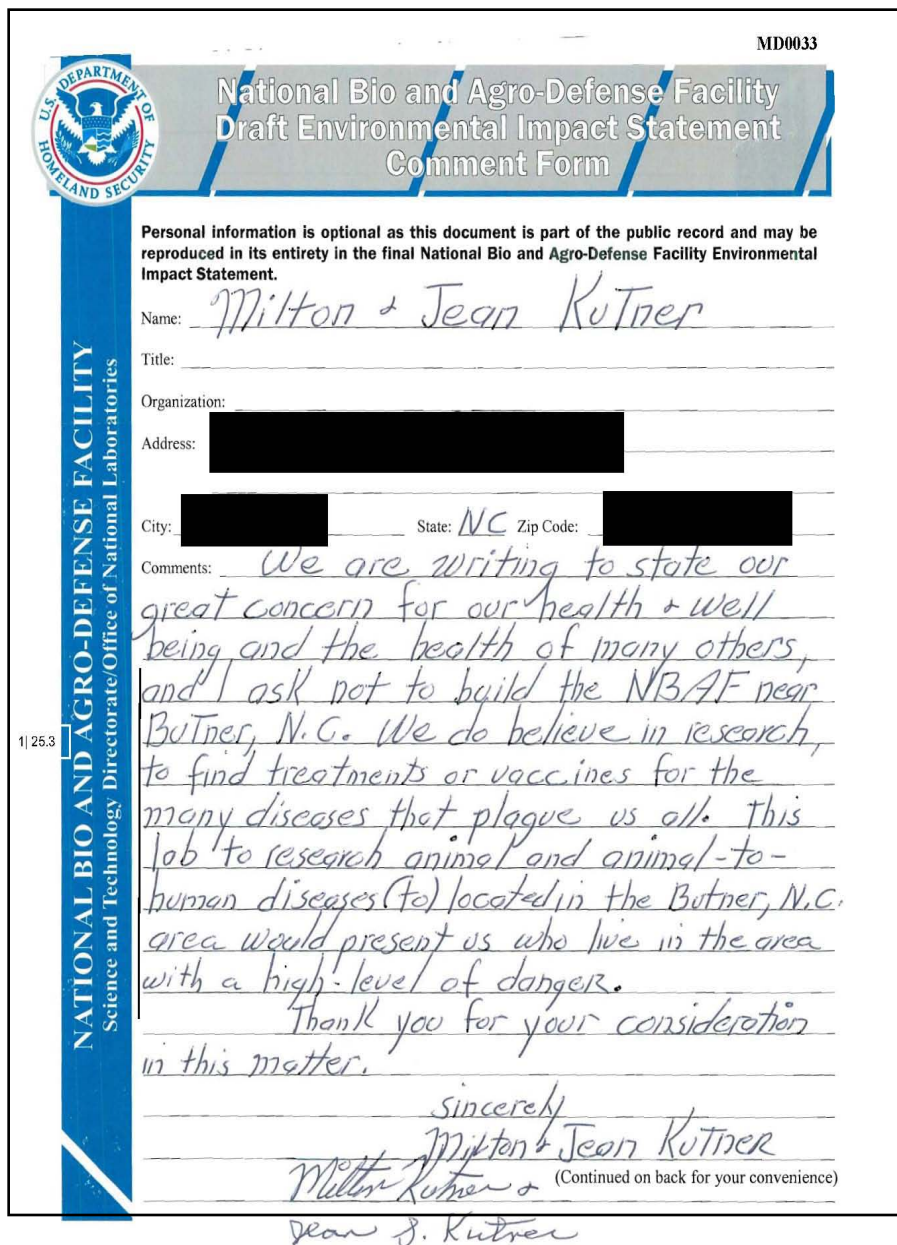 MD0033
U.S. DEPARTMENT OF HOMELAND SECURITY
National Bio and Agro-Defense Facility
Draft Environmental Impact Statement
Comment Form
NATIONAL BIO AND AGRO-DEFENSE FACILITY
Science and Technology Directorate/Office of National Laboratories
Personal information is optional as this document is part of the public record and may be
reproduced in its entirety in the final National Bio and Agro-Defense Facility Environmental
Impact Statement.
Name: Milton & Jean Kutner
Title:
Organization:
Address:
City: State: NC Zip Code:
Comments: We are writing to state our
great concern for our health & well
being and the health of many others,
and I ask not to build the NBAF near
Butner, N.C. We do believe in research,
1| 25.3
to find treatments or vaccines for the
many diseases that plague us all. This
lab to research animal and animal-to-
human diseases (to) located in the Butner, N.C.
area would present us who live in the area
with a high-level of danger.
Thank you for your consideration
in this matter.
sincerely
Milton & Jean Kutner
(Continued on back for your convenience)
Milton Kutner &
Jean S. Kutner